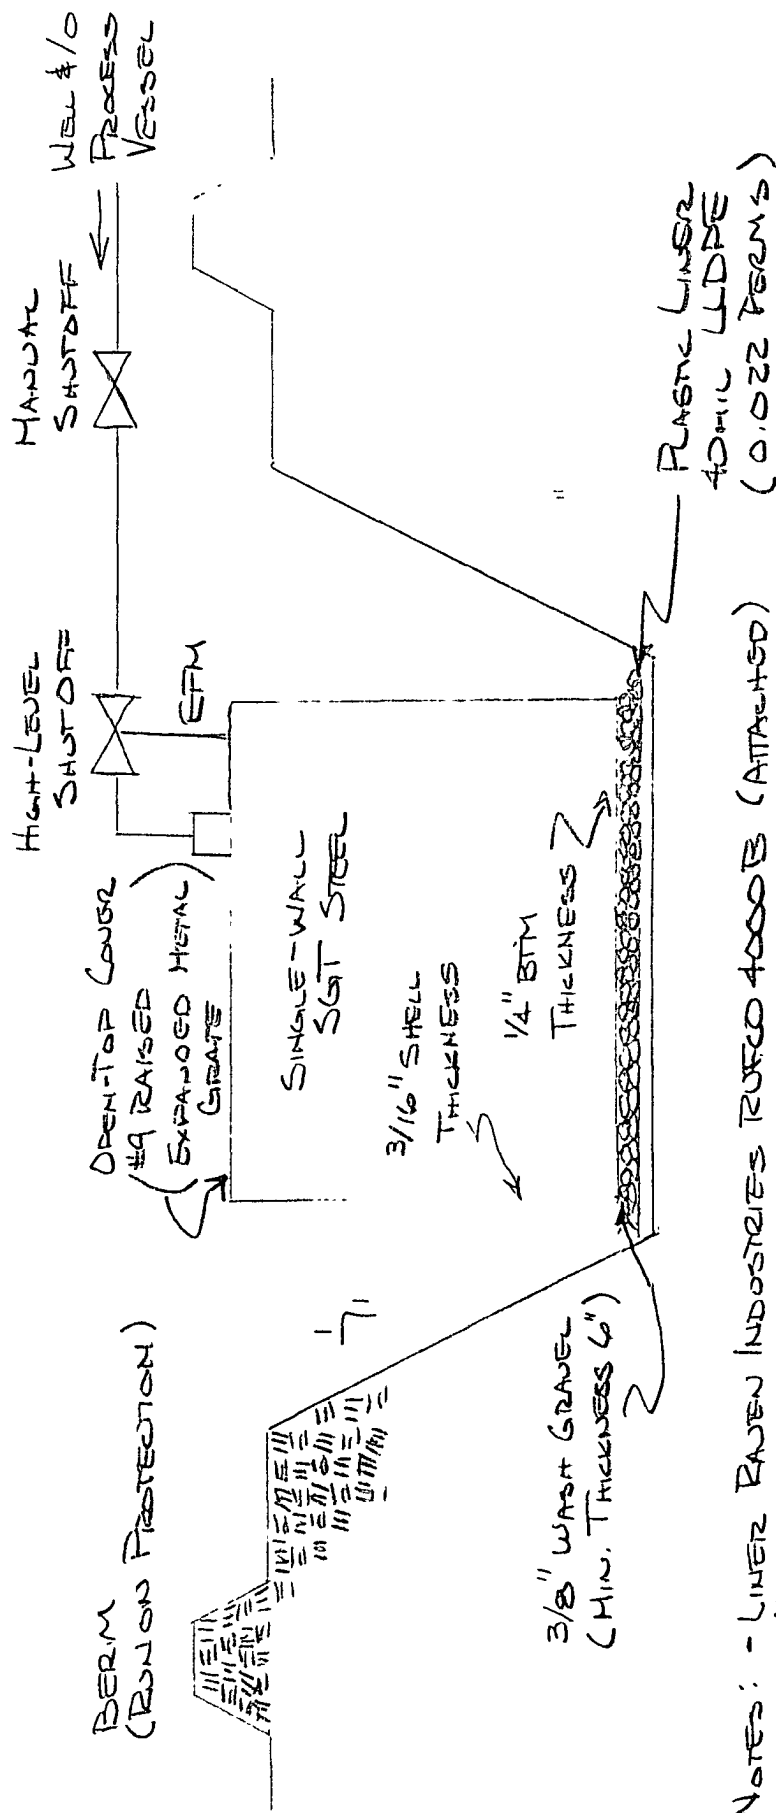 BERM
(RUNON PROTECTION)
OPEN-TOP COVER
#9 RAISED
EXPANDED METAL
GRATE
HIGH-LEVEL
SHUTOFF
MANUAL
SHUTOFF
WELL &/O
PROCESS
VESSEL
EFM
SINGLE-WALL
SGT STEEL
3/16" SHELL
THICKNESS
1/4" BTM
THICKNESS
3/8" WASH GRAVEL
(MIN. THICKNESS 6")
PLASTIC LINER
40MIL LLDPE
(0.022 PERMS)
NOTES: - LINER RAVEN INDUSTRIES RUFCO 4000B (ATTACHED)